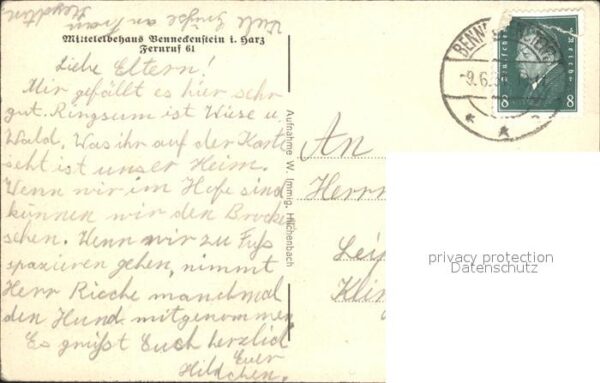 Viele Grüße an Frau
Mittelelbehaus Benneckenstein i. Harz
Fernruf 61
Liebe Eltern!
Mir gefällt es hier sehr
gut. Ringsum ist Wiese u.
Wald. Was ihr auf der Karte
seht ist unser Heim.
Wenn wir im Hofe sind
können wir den Brocken
sehen. Wenn wir zu Fuß
spazieren gehen, nimmt
Herr Riecke manchmal
den Hund mitgenommen
Es grüßt Euch herzlich
Euer
Hildchen.
Aufnahme W. Immig, Hilchenbach
An
Herrn
Lei
Klin
Deutsches Reich
8 8
-9.6.3
privacy protection
Datenschutz